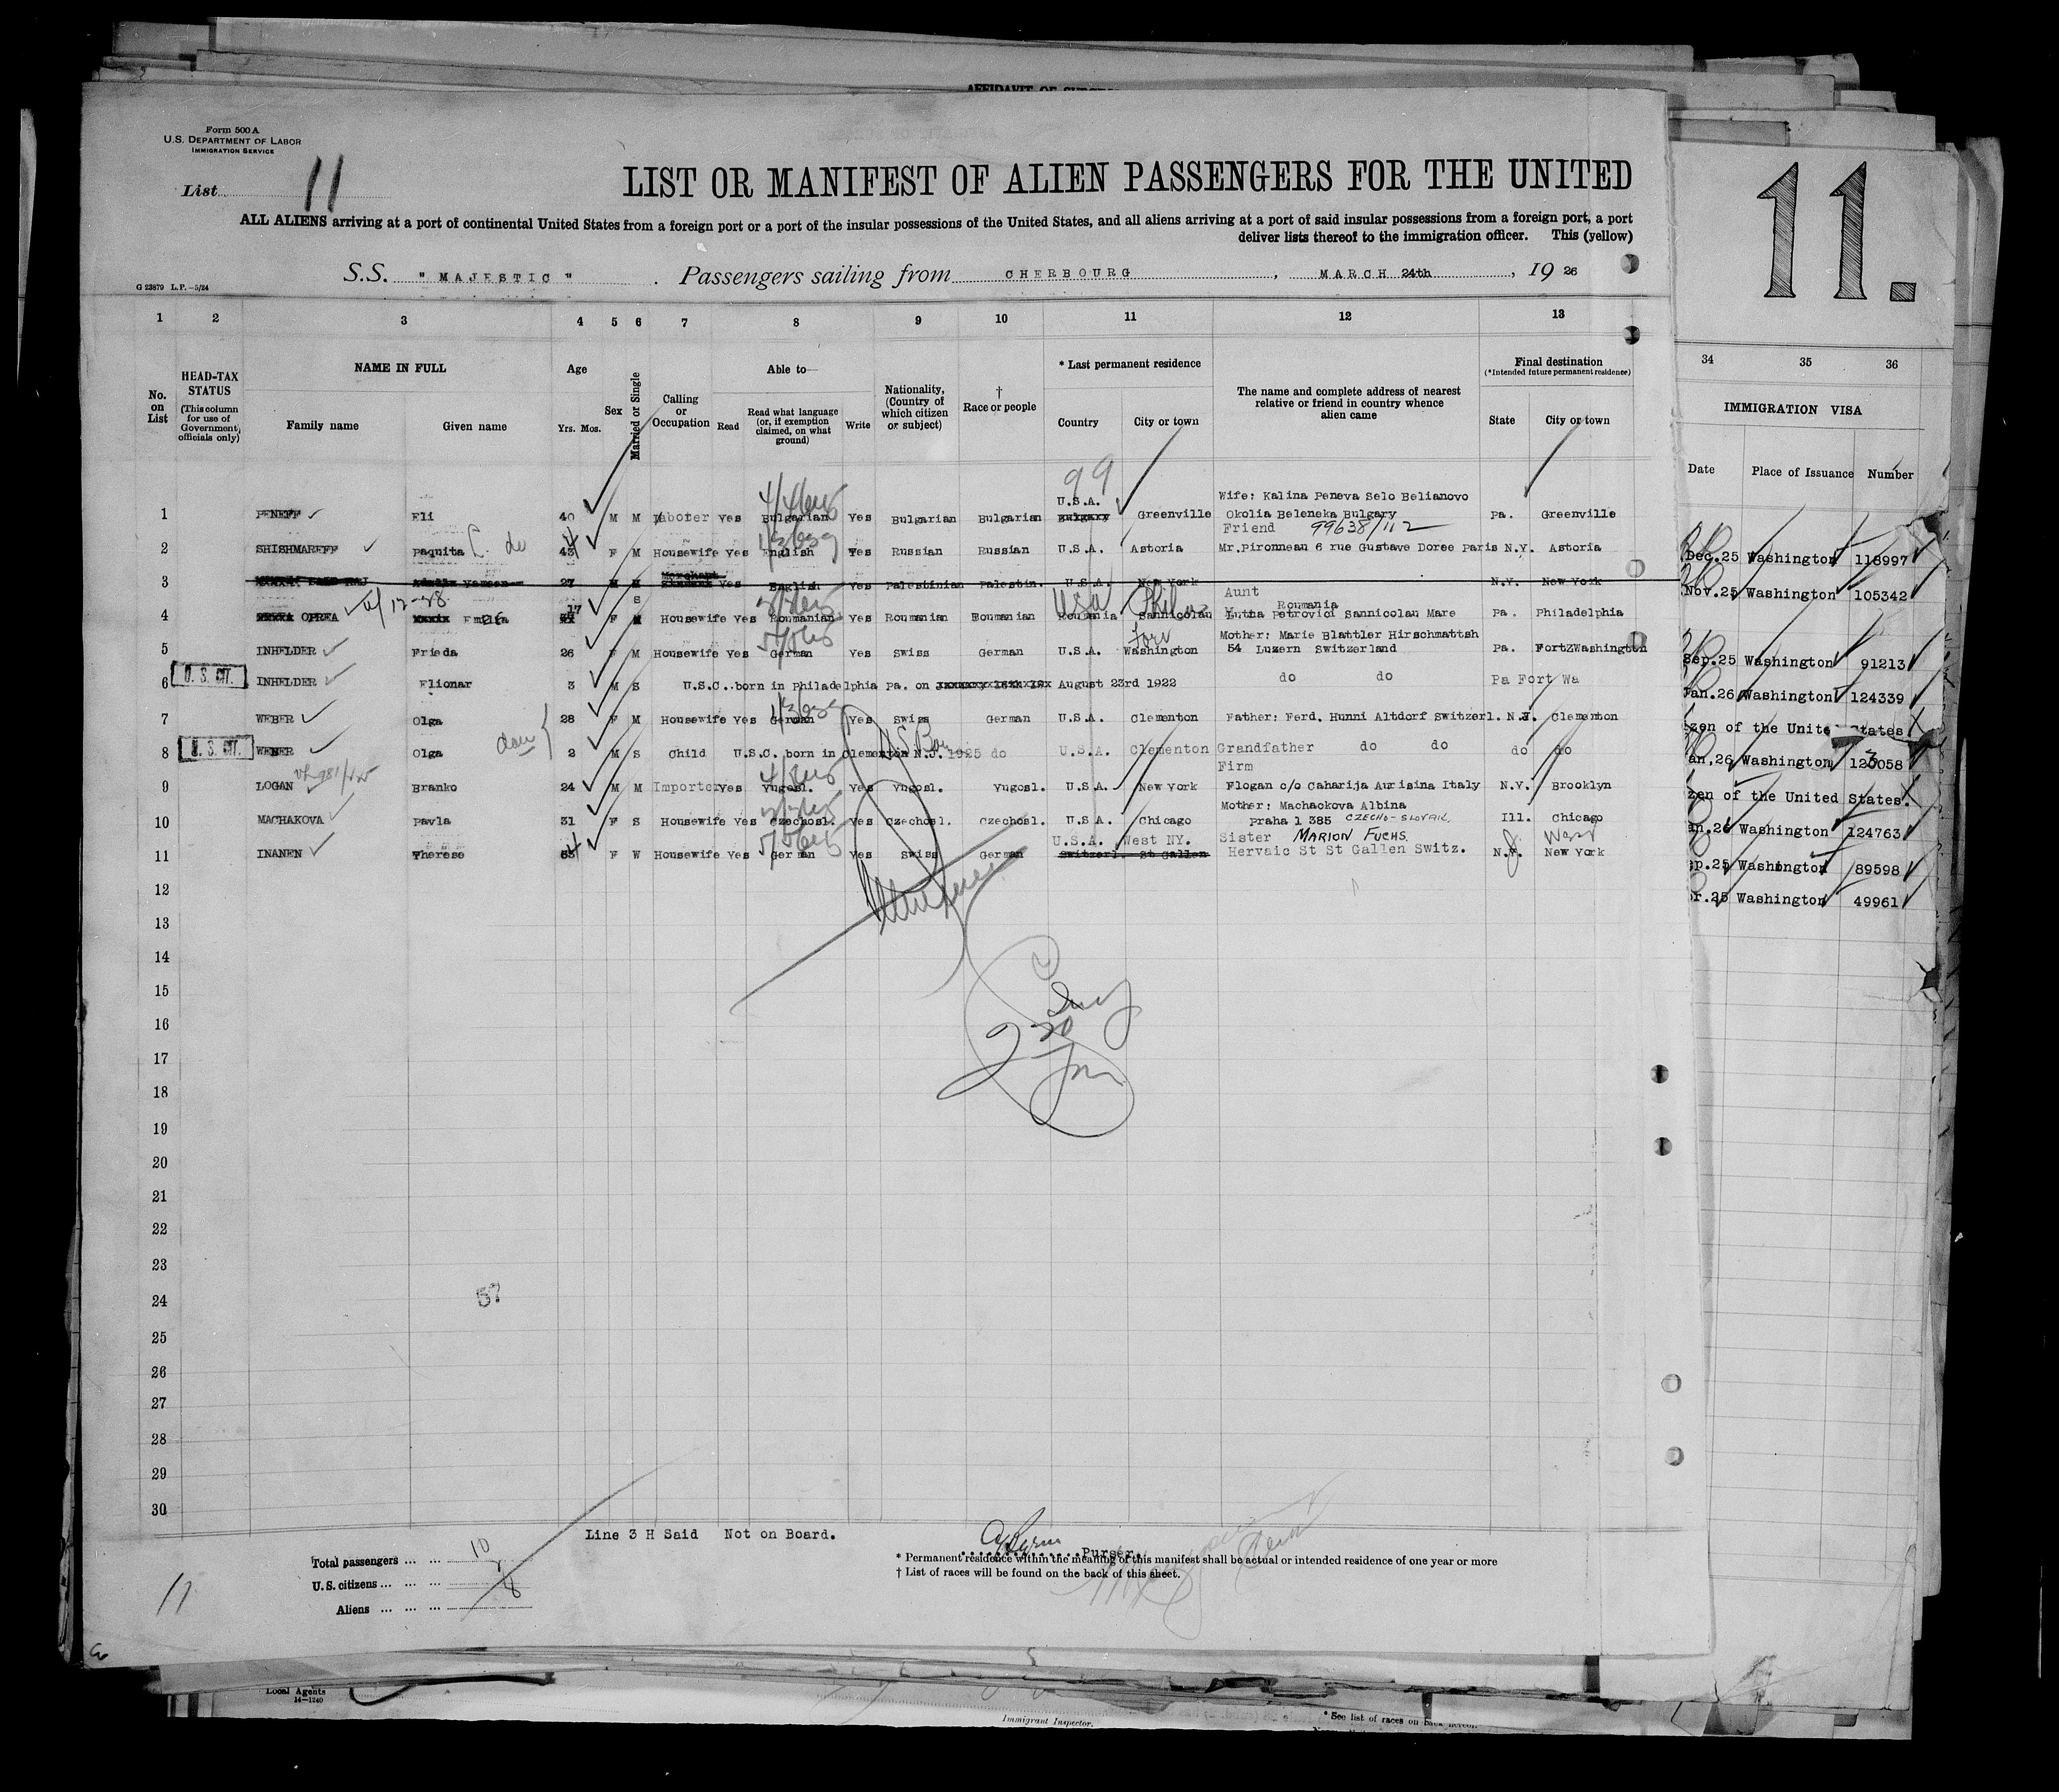 AFFIDAVIT OF
Form 500 A
U.S. DEPARTMENT OF LABOR
IMMIGRATION SERVICE
List 11
LIST OR MANIFEST OF ALIEN PASSENGERS FOR THE UNITED
11.
ALL ALIENS arriving at a port of continental United States from a foreign port or a port of the insular possessions of the United States, and all aliens arriving at a port of said insular possessions from a foreign port, a port
deliver lists thereof to the immigration officer. This (yellow)
S.S. "MAJESTIC". Passengers sailing from CHERBOURG, MARCH 24th, 19 26
G 23879 L.P.—5/24
1 2 3 4 5 6 7 8 9 10 11 12 13
34 35 36
No. on List
HEAD-TAX STATUS
(This column for use of Government officials only)
NAME IN FULL
Family name Given name
Age
Yrs. Mos.
Sex
Married or Single
Calling or Occupation
Able to—
Read
Read what language (or, if exemption claimed, on what ground)
Write
Nationality, (Country of which citizen or subject)
† Race or people
* Last permanent residence
Country City or town
The name and complete address of nearest relative or friend in country whence alien came
Final destination
(*Intended future permanent residence)
State City or town
IMMIGRATION VISA
Date Place of Issuance Number
99
U.S.A. Wife: Kalina Peneva Selo Belianovo
1 PENEFF Eli 40 M M Laborer Yes Bulgarian Yes Bulgarian Bulgarian Bulgary Greenville Okolia Beleneka Bulgary Pa. Greenville
Friend 99638/112
2 SHISHMAREFF Paquita L. de 43 F M Housewife Yes English Yes Russian Russian U.S.A. Astoria Mr.Pironneau 6 rue Gustave Doree Paris N.Y. Astoria
Merchant
3 27 M M Yes English Yes Palestinian Palestin. U.S.A. New York N.Y. New York
17 S USA Phil Aunt Roumania
4 OPREA Emilia F Housewife Yes Roumanian Yes Roumanian Roumanian Roumania Sannicolau Petrovici Sannicolau Mare Pa. Philadelphia
Fort Mother: Marie Blattler Hirschmattsh
5 INHELDER Frieda 26 F M Housewife Yes German Yes Swiss German U.S.A. Washington 54 Luzern Switzerland Pa. Fort Washington
U.S. CIT.
6 INHELDER Elionar 3 M S U.S.C. born in Philadelphia Pa. on August 23rd 1922 do do Pa Fort Wa
7 WEBER Olga 28 F M Housewife Yes German Yes Swiss German U.S.A. Clementon Father: Ferd. Hunni Altdorf Switzerl. N.J. Clementon
U.S. CIT.
8 WEBER Olga dau 2 M S Child U.S.C. born in Clementon N.J. 1925 do U.S.A. Clementon Grandfather do do do do
Firm
9 LOGAN Branko 24 M M Importer Yes Yugosl. Yes Yugosl. Yugosl. U.S.A. New York Flogan c/o Caharija Aurisina Italy N.Y. Brooklyn
Mother: Machackova Albina
10 MACHAKOVA Pavla 31 F S Housewife Yes Czechosl. Yes Czechosl. Czechosl. U.S.A. Chicago Praha 1 385 CZECHO-SLOVAK. Ill. Chicago
U.S.A. West NY. Sister MARION FUCHS. J. West
11 INANEN Therese F W Housewife Yes German Yes Swiss German Switzerl St Gallen Hervaic St St Gallen Switz. N.Y. New York
Dec.25 Washington 118997
Nov.25 Washington 105342
Sep.25 Washington 91213
Jan.26 Washington 124339
zen of the United States
an.26 Washington 123058
zen of the United States.
an.26 Washington 124763
ep.25 Washington 89598
r.25 Washington 49961
12
13
14
15
16
17
18
19
20
21
22
23
24
57
25
26
27
28
29
30
Line 3 H Said Not on Board.
Purser.
Total passengers 10
U.S. citizens 2
Aliens 8
* Permanent residence within the meaning of this manifest shall be actual or intended residence of one year or more
† List of races will be found on the back of this sheet.
11
Local Agents
14—1240
Immigrant Inspector.
* See list of races on back hereof.